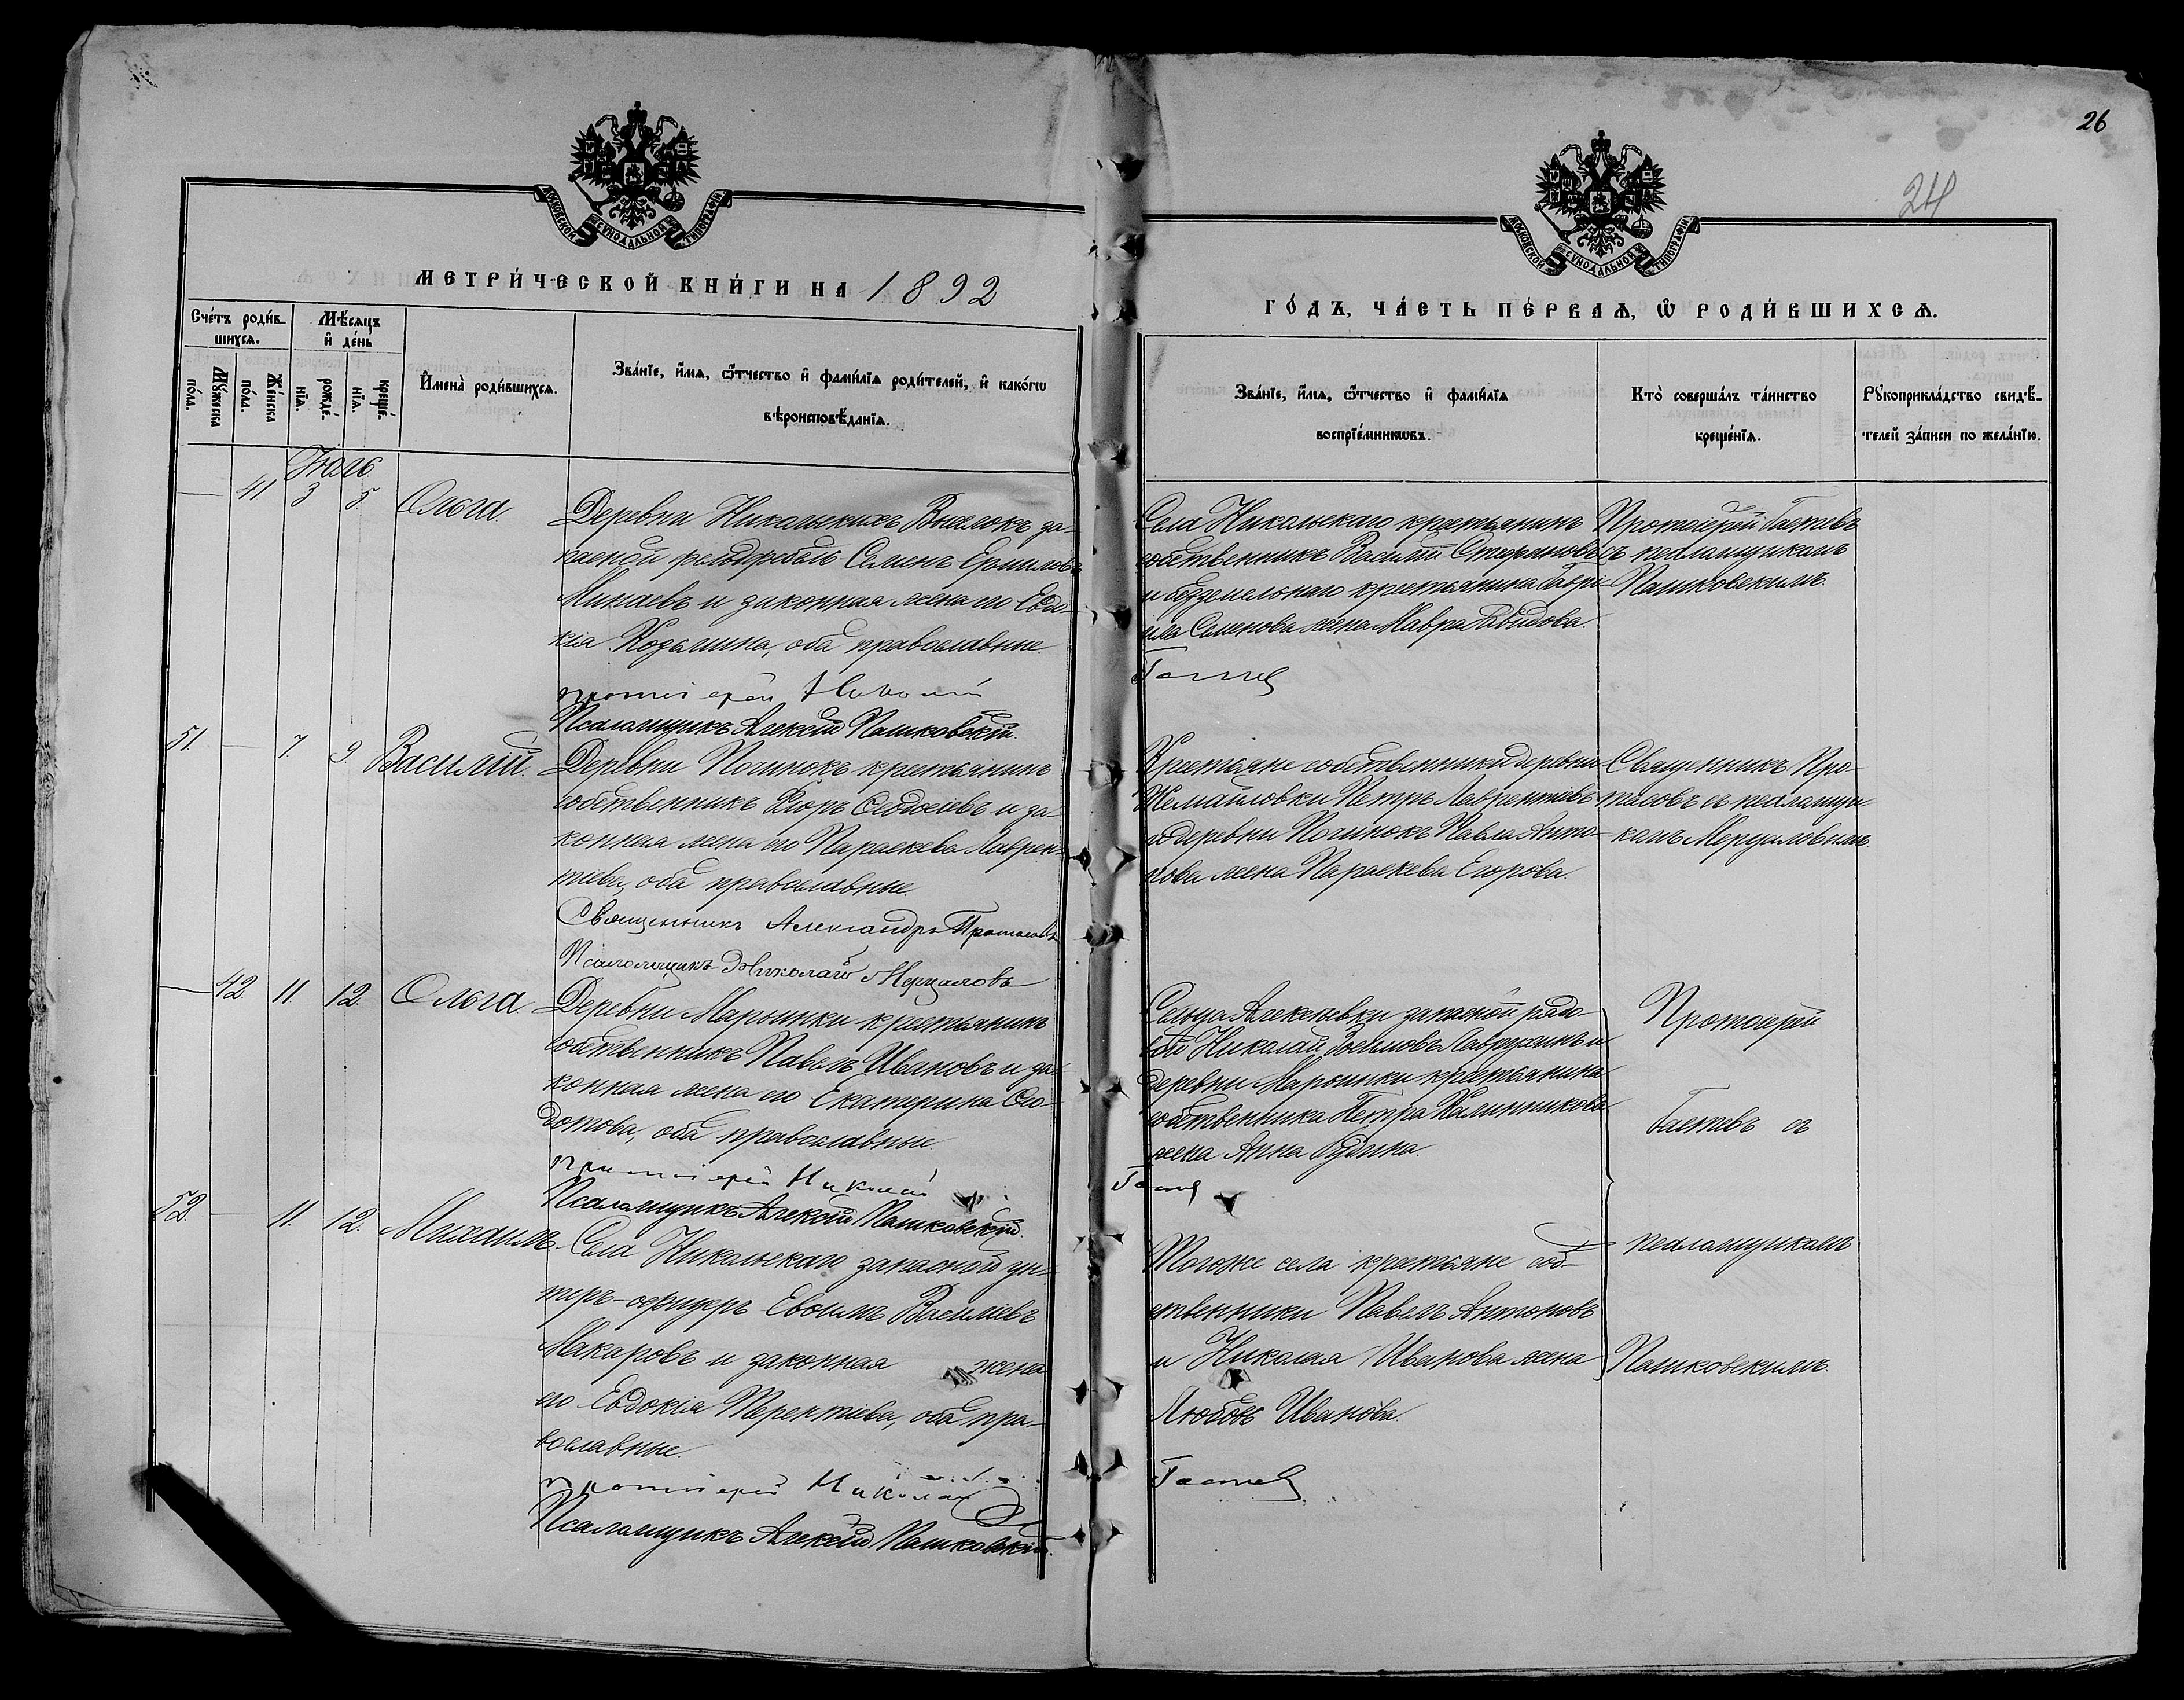 26
24
МОСКОВСКОЙ СѴНОДАЛЬНОЙ ТИПОГРАФІИ
МОСКОВСКОЙ СѴНОДАЛЬНОЙ ТИПОГРАФІИ
МЕТРИ́ЧЕСКОЙ КНИ́ГИ НА 1892
ГО́ДЪ, ЧА́СТЬ ПЕ́РВАѦ, Ѽ РОДИ́ВШИХСѦ.
Сче́тъ роди́в-
шихсѧ.
Мѣ́сѧцъ
и҆ де́нь
Мꙋ́жеска по́ла.
Же́нска по́ла.
рожде́нїѧ.
креще́нїѧ.
И҆мена̀ роди́вшихсѧ.
Зва́нїе, и҆́мѧ, ѻ҆́тчество и҆ фами́лїѧ роди́телей, и҆ како́гѡ
вѣроисповѣ́данїѧ.
Зва́нїе, и҆́мѧ, ѻ҆́тчество и҆ фамі́лїѧ
воспрїе́мникѡвъ.
Кто̀ соверша́лъ та́инство
креще́нїѧ.
Рꙋкоприкла́дство свидѣ́-
телей за́писи по жела́нїю.
Іюль
41 3 5 Ольга.
Деревни Никольскихъ Выселокъ за-
пасной фельдфебель Семенъ Ермиловъ
Минаевъ и законная жена его Евдо-
кія Козьмина, оба православные.
протоіерей Николай
Псаломщикъ Алексій Пашковскій.
Села Никольскаго крестьянинъ
собственникъ Василій Стефановъ
и безземельнаго крестьянина Гаврі-
ила Семенова жена Мавра Давидова.
Гастев
Протоіерей Гастевъ
съ псаломщикомъ
Пашковскимъ.
51. 7. 9. Василій.
Деревни Починокъ крестьянинъ
собственникъ Егоръ и за-
конная жена его Параскева Лаврен-
тиева, оба православные.
Священникъ Александръ Протасовъ
Псаломщикъ Николай Мерцаловъ
Крестьяне собственники деревни
Измайловки Петръ Лаврентиевъ
и деревни Починокъ Павла Анто-
нова жена Параскева Егорова.
Священникъ Про-
тасовъ съ псаломщи-
комъ Мерцаловымъ.
42. 11. 12. Ольга.
Деревни Марьинки крестьянинъ
собственникъ Павелъ Ивановъ и за-
конная жена его Екатерина Ѳео-
дотова, оба православные.
протоіерей Николай
Псаломщикъ Алексій Пашковскій.
Сельца Алексѣевки запасной рядо-
вой Николай и
деревни Марьинки крестьянина
собственника Петра Калинникова
жена Анна
Гастев
Протоіерей
Гастевъ съ
псаломщикомъ
Пашковскимъ.
52. 11. 12. Михаилъ.
Села Никольскаго запасной ун-
теръ-офицеръ Евѳимъ Василіевъ
Макаровъ и законная жена
его Евдокія Терентіева, оба пра-
вославные.
протоіерей Николай
Псаломщикъ Алексій Пашковскій.
Того же села крестьяне соб-
ственники Павелъ Антоновъ
и Николая Иванова жена
Любовь Иванова.
Гастев